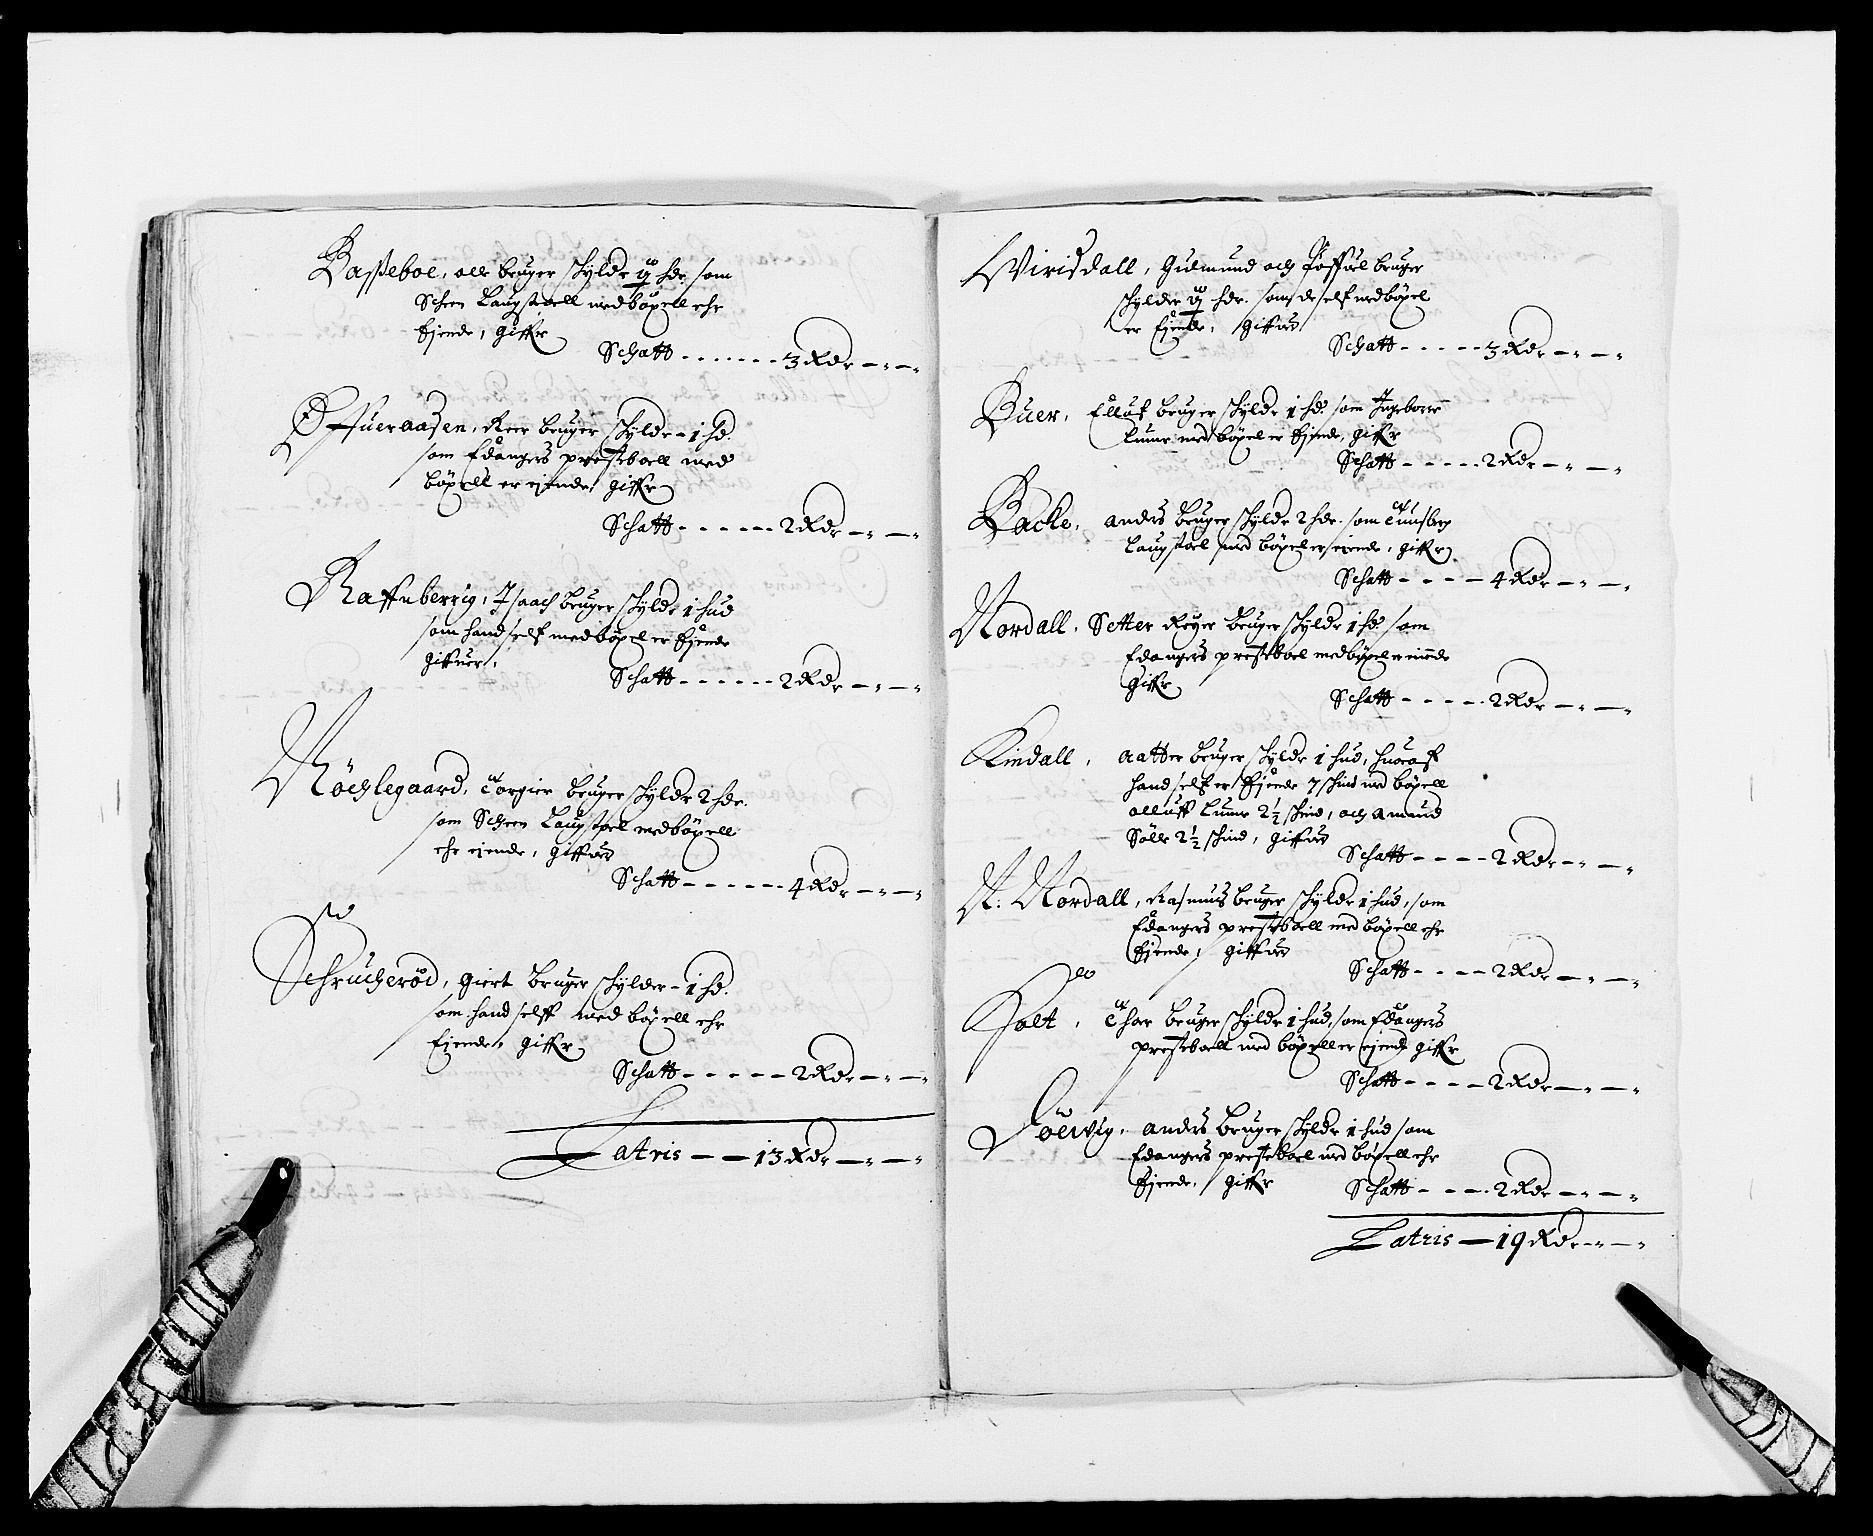 Basseboe, Olle bruger schylder 1½ hdr. som
Scheen Laugstoell med böxell ehr
Ejende, Giffr
Schatt - - - - - - 3 Rdr — " — "
Offueraasen, Reer bruger schylder - 1 hd.
som Edangers presteboell med
böxell er ejende, giffr
Schatt - - - - - - 2 Rdr — " — "
Raffnberrig, Isaach bruger schylder 1 hud
som hand self med böxel er Ejende
Giffuer,
Schatt - - - - - - 2 Rdr — " — "
Möchlegaard, Torgier bruger schylder 2 hdr.
som Scheen Laugstoel med böxell
ehr ejende, giffuer
Schatt - - - - - - 4 Rdr — " — "
Schrucherød, Giert bruger schylder - 1 hd.
som hand selff med böxell ehr
Ejende, giffr
Schatt - - - - - 2 Rdr — " — "
Latris — — 13 Rdr — " — "
Wirisdall, Gudmund och bruger
schylder 1½ hdr. som de self med böxel
er Ejende, giffuer
Schatt - - - - - 3 Rdr — " — "
Buer, Elluf bruger schylder 1 hd. som Ingeborre
Lunne med böxel er Ejende, giffr
Schatt - - - - - 2 Rdr — " — "
Backe, anders bruger schylder 2 hdr. som Tunsberg
Laugstoel med böxel er ejende, giffr
Schatt - - - - 4 Rdr — " — "
Nordall, Setter Reyer bruger schylder 1 hd. som
Edangers presteboel med böxel er einde
Giffr
Schatt - - - - 2 Rdr — " — "
Kindall, aatter bruger schylder 1 hud, huoraf
hand self er Ejende 7 schind med böxell
olluff Lunne 2½ schind, och Amund
Sölle 2½ schind, giffuer
Schatt - - - - 2 Rdr — " — "
N. Nordall, Rasmus bruger schylder 1 hud, som
Edangers presteboell med böxell ehr
Ejende, giffuer
Schatt - - - - 2 Rdr — " — "
Holt, Thor bruger schylder 1 hud, som Edangers
presteboell med böxell er ejende giffr
Schatt - - - - 2 Rdr — " — "
anders bruger schylder 1 hud som
Edangers presteboel med böxell ehr
Ejende, giffr
Schatt - - - - 2 Rdr — " — "
Latris — 19 Rdr — " — "